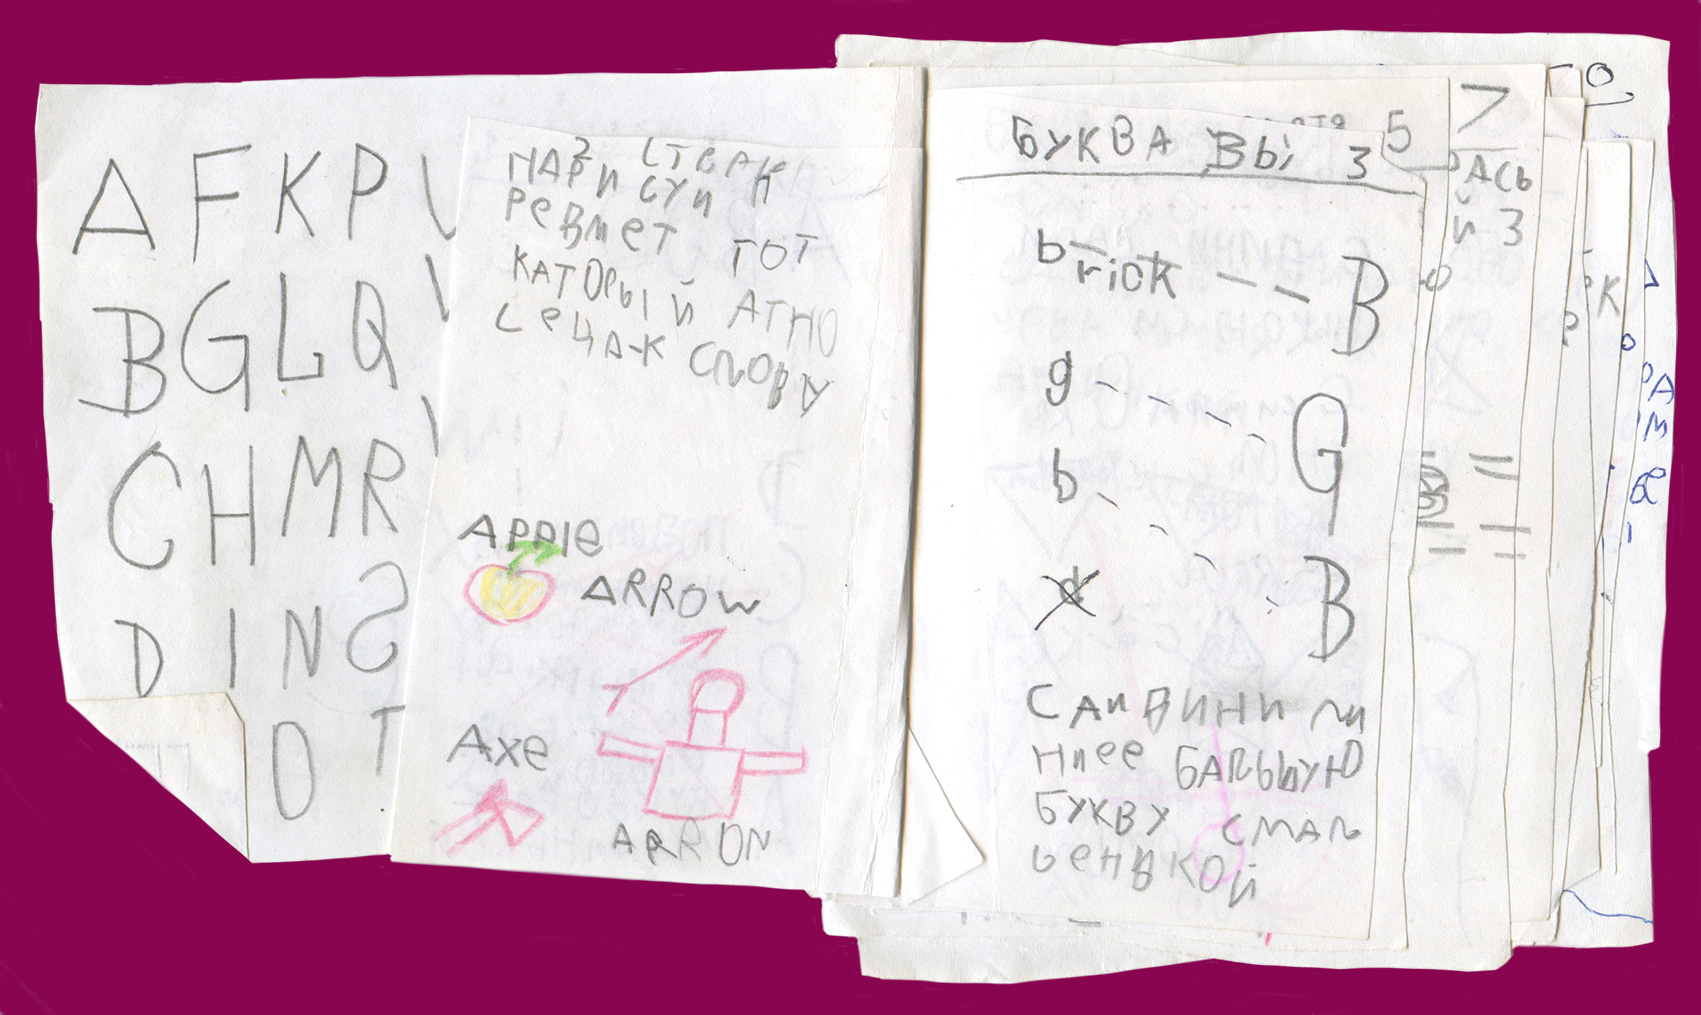 A F K P
B G L Q
C H M R
D I N S
O T
НАРИСУЙ П
РЕВМЕТ ТОТ
КАТОРЫЙ АТНО
СЕЦА-К СЛОВУ
APPlE
ARROW
AXe
ARRON
БУКВА ВЫ 3
brick -- B
g ---- G
b ---- B
d
САИВИНИ ЛИ
НИЕЕ БАЛЬШУЮ
БУКВУ СМАЛ
ЬЕНВКОЙ
5
7
АСЬ
Й 3